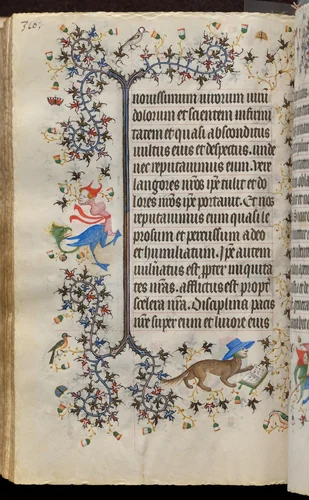 360.
nouissimum uirorum uirū
dolorum et scientem infirmi
tatem et quasi absconditus
uultus eius et despectus. unde
nec reputauimus eum. Uere
langores nr̄os ip̄e tulit et do
lores nr̄os ip̄e portauit. Et nos
reputauimus eum quasi le
prosum et percussum a deo
et humiliatum. Ip̄e autem
uulnatus est ꝓpter iniquita
tes nr̄as. afflictus est ꝓpter
scelera nr̄a. Disciplina pacis
nr̄e super eum et liuore eius